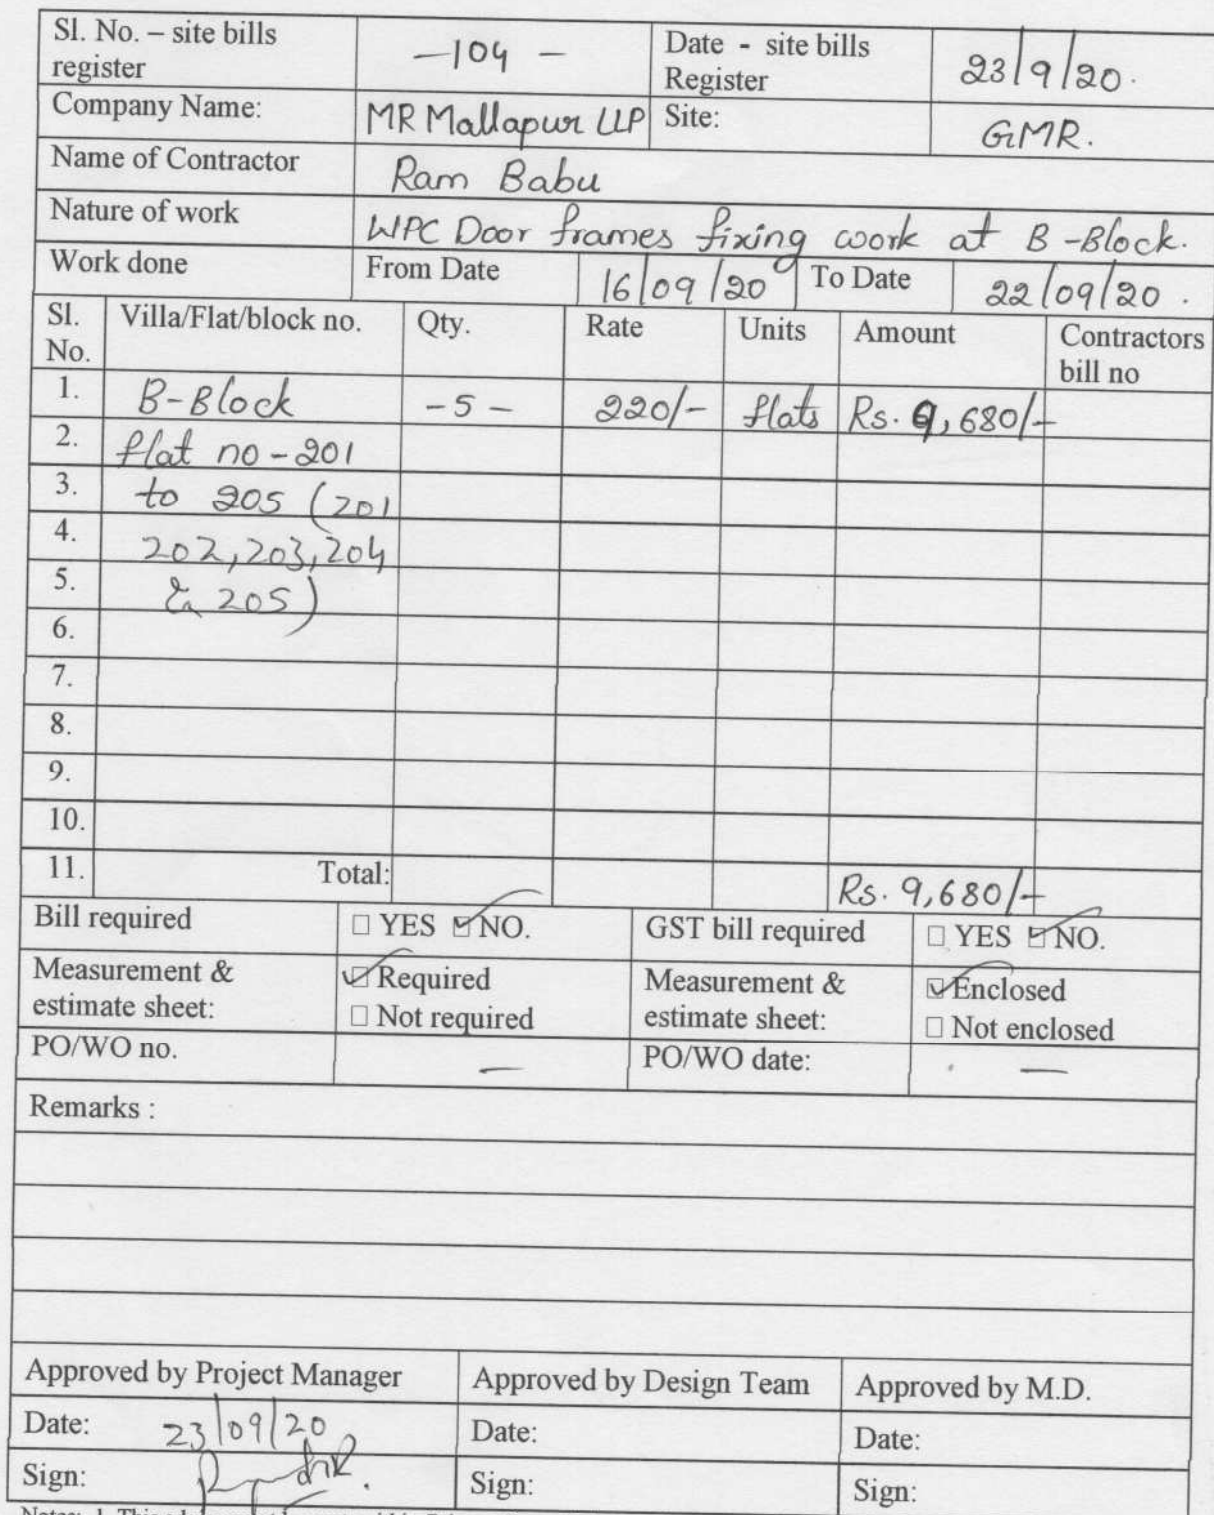 Sl. No. – site bills register -104 - Date - site bills Register 23/9/20.
Company Name: MR Mallapur LLP Site: GMR.
Name of Contractor Ram Babu
Nature of work WPC Door frames fixing work at B-Block.
Work done From Date 16/09/20 To Date 22/09/20.
Sl. No. Villa/Flat/block no. Qty. Rate Units Amount Contractors bill no
1. B-Block -5- 220/- flats Rs. 9,680/-
2. flat no-201
3. to 205 (201
4. 202,203,204
5. & 205)
6.
7.
8.
9.
10.
11. Total: Rs. 9,680/-
Bill required □ YES ☑ NO. GST bill required □ YES ☑ NO.
Measurement & estimate sheet: ☑ Required □ Not required Measurement & estimate sheet: ☑ Enclosed □ Not enclosed
PO/WO no. — PO/WO date: —
Remarks :
Approved by Project Manager Approved by Design Team Approved by M.D.
Date: 23/09/20 Date: Date:
Sign: Sign: Sign: